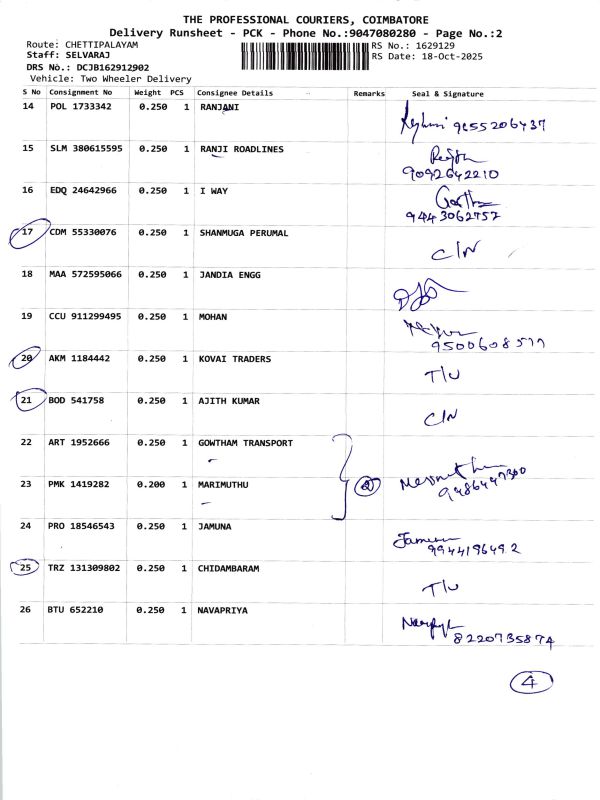 THE PROFESSIONAL COURIERS, COIMBATORE
Delivery Runsheet - PCK - Phone No.:9047080280 - Page No.:2
Route: CHETTIPALAYAM RS No.: 1629129
Staff: SELVARAJ RS Date: 18-Oct-2025
DRS No.: DCJB162912902
Vehicle: Two Wheeler Delivery
S No Consignment No Weight PCS Consignee Details Remarks Seal & Signature
14 POL 1733342 0.250 1 RANJANI 9655206437
15 SLM 380615595 0.250 1 RANJI ROADLINES
9092642210
16 EDQ 24642966 0.250 1 I WAY
9443062757
17 CDM 55330076 0.250 1 SHANMUGA PERUMAL C/N
18 MAA 572595066 0.250 1 JANDIA ENGG
19 CCU 911299495 0.250 1 MOHAN
20 AKM 1184442 0.250 1 KOVAI TRADERS T/U
21 BOD 541758 0.250 1 AJITH KUMAR C/N
22 ART 1952666 0.250 1 GOWTHAM TRANSPORT
23 PMK 1419282 0.200 1 MARIMUTHU 2
9486447300
24 PRO 18546543 0.250 1 JAMUNA
9944196492
25 TRZ 131309802 0.250 1 CHIDAMBARAM T/U
26 BTU 652210 0.250 1 NAVAPRIYA
8220735874
4